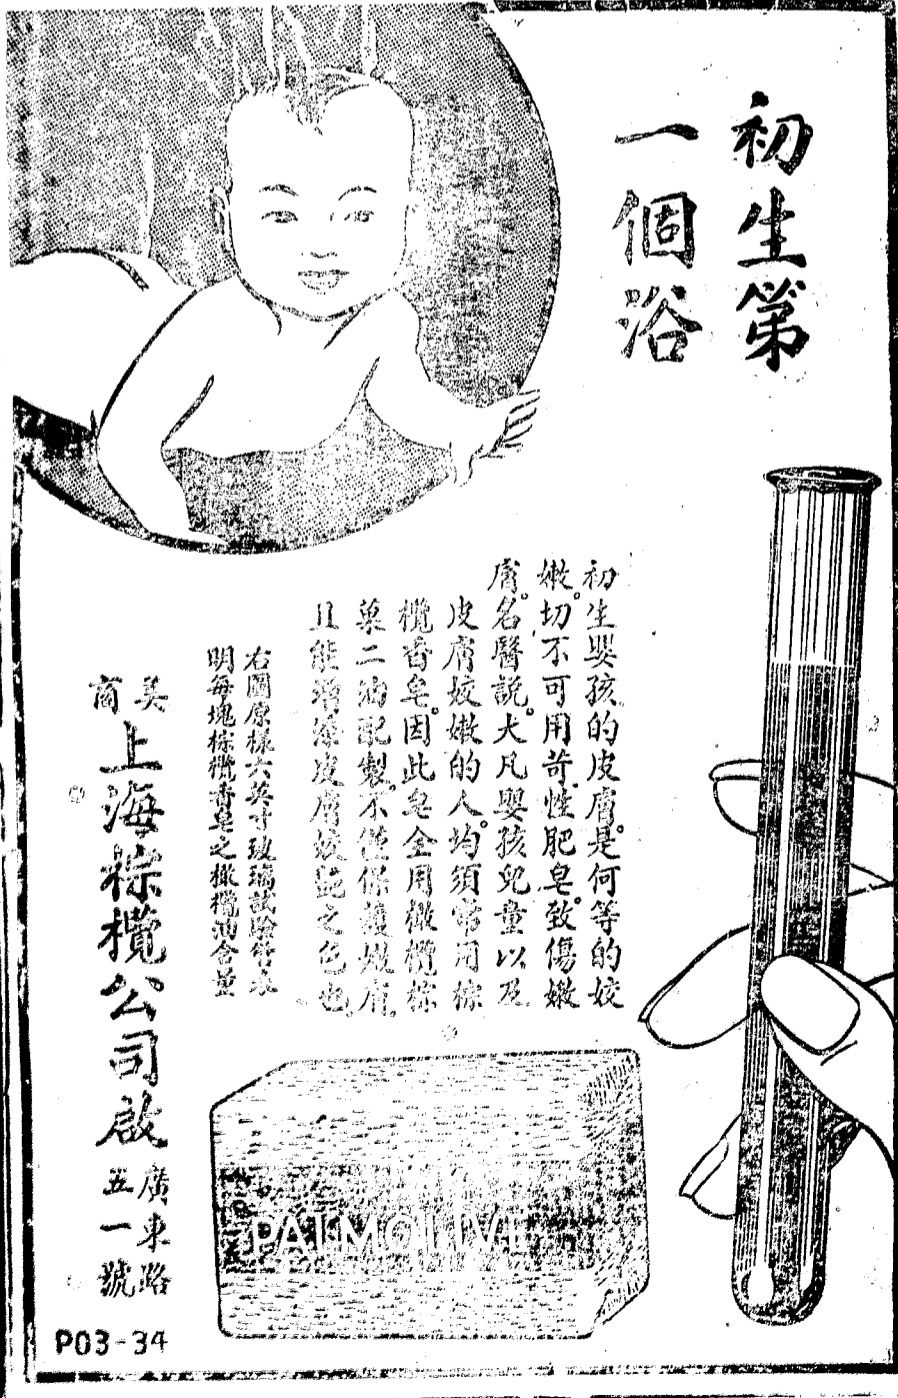 初生第
一個浴
初生嬰孩的皮膚。是何等的姣
嫩。切不可用苛性肥皂。致傷嫩
膚。名醫說。大凡嬰孩兒童以及
皮膚姣嫩的人。均須常用棕
欖香皂。因此皂全用橄欖棕
菓二油配製。不僅保護嫩膚。
且能增添皮膚姣艷之色也。
右圖原樣六英寸玻璃試驗管表
明每塊棕欖香皂之橄欖油含量
美商
上海棕欖公司啟
廣東路
五一號
PALMOLIVE
P03-34